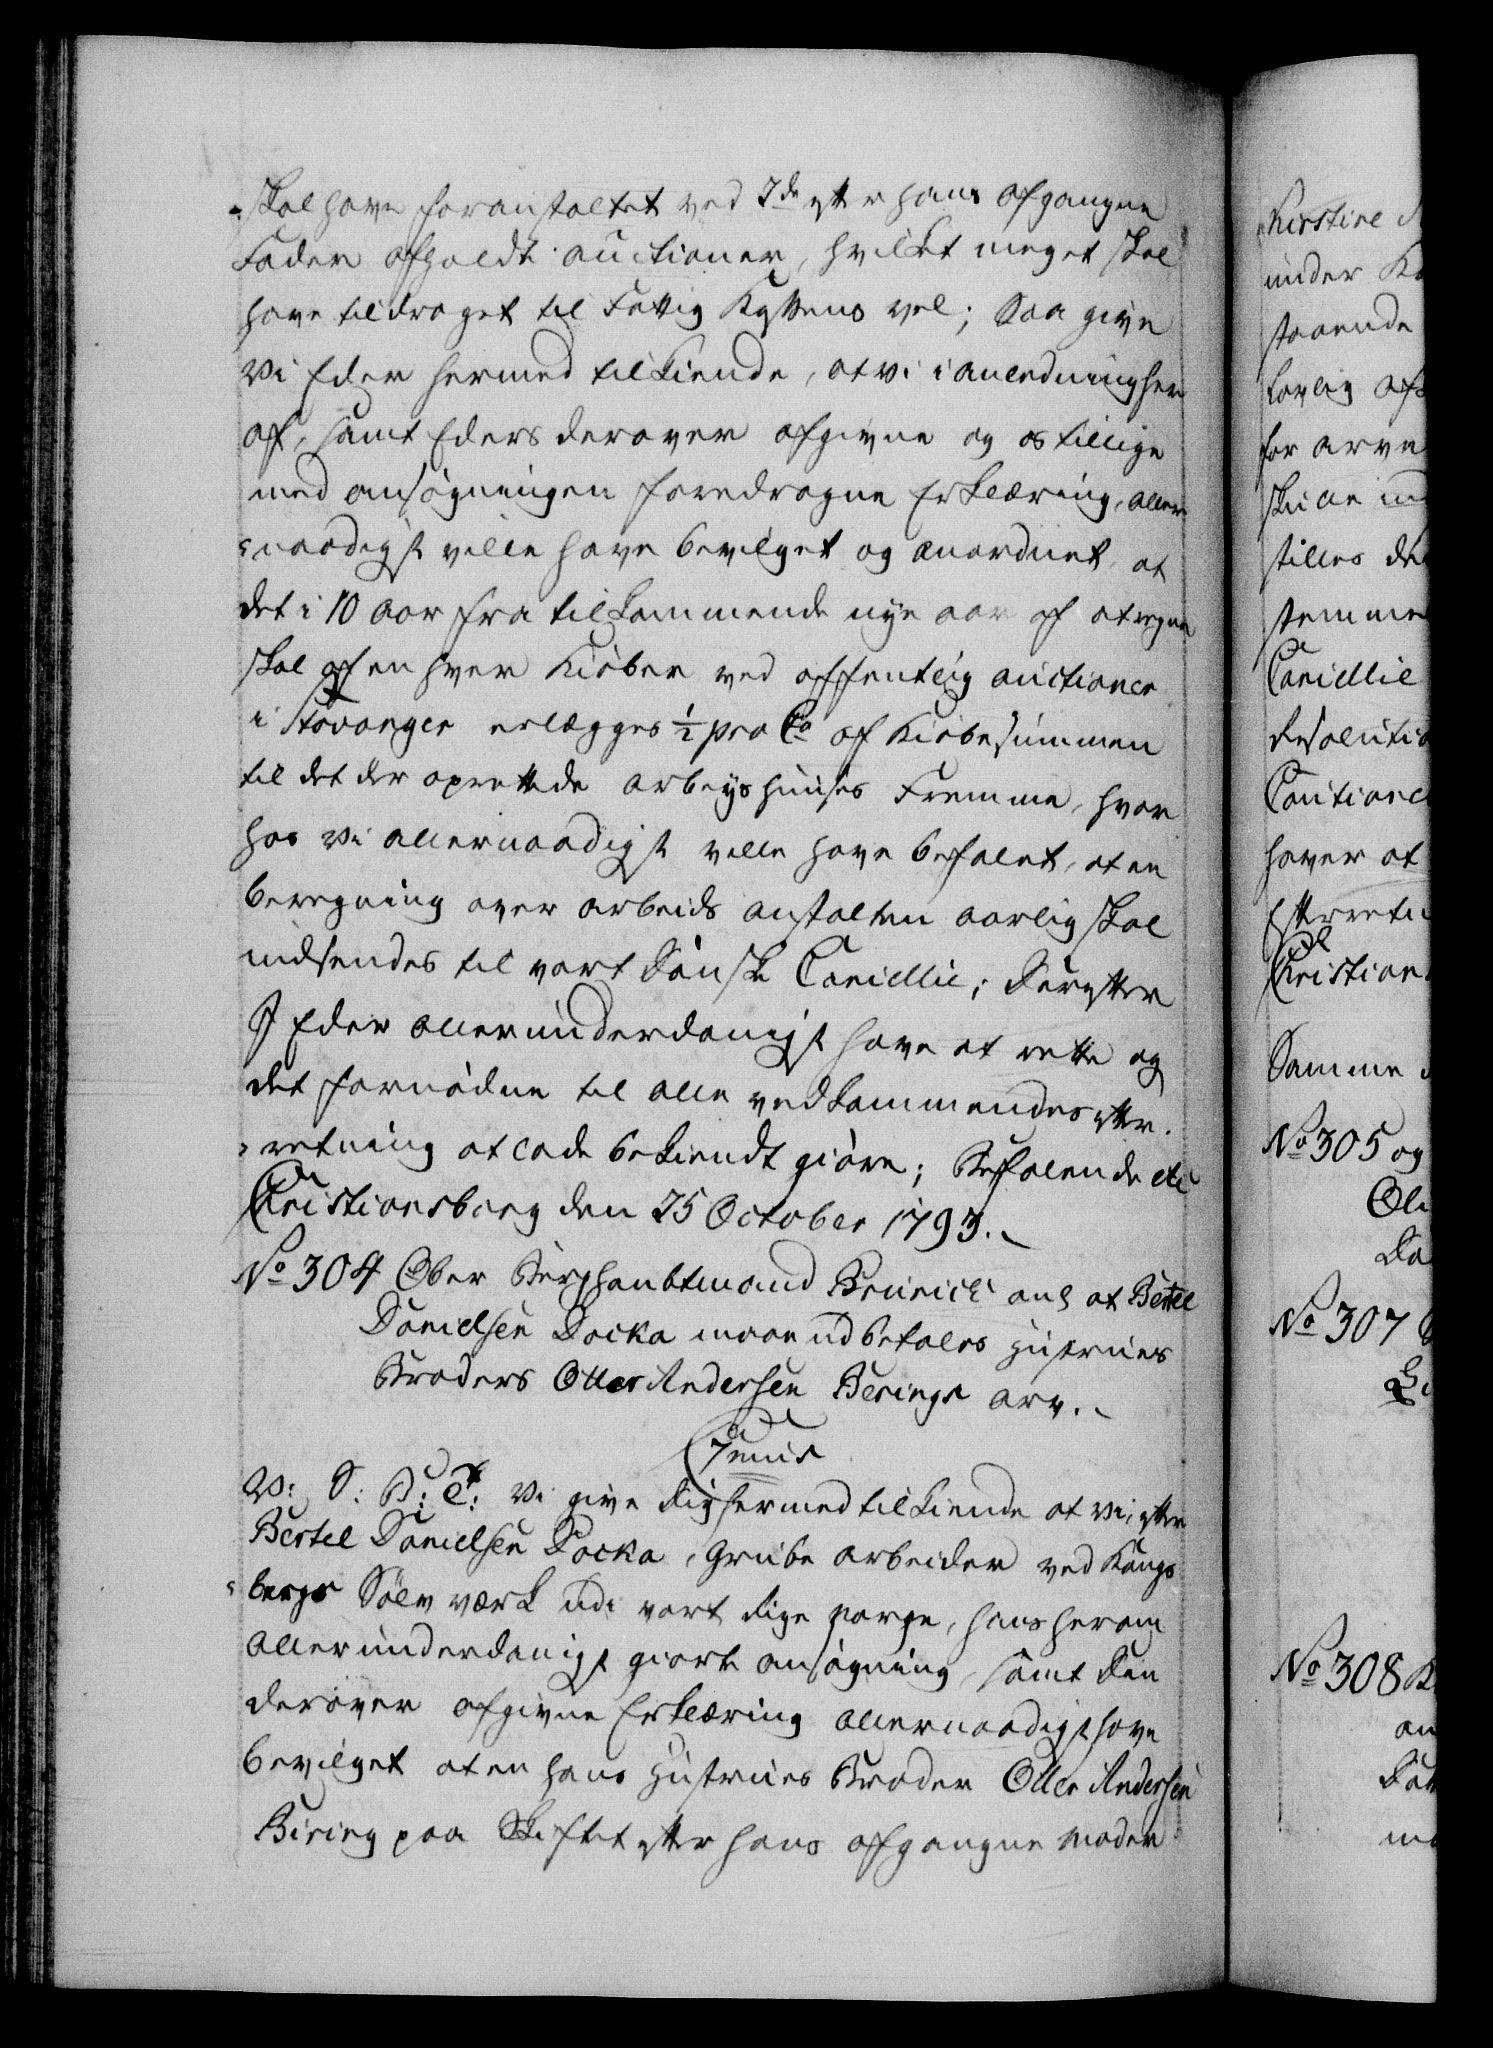 skal have foranstaltet ved 2de efter hans afgangne
Fader afholdt auctioner, hvilket meget skal
have tildraget til Fattig Kassens vel; Saa give
Vi Eder hermed tilkiende, at vi i anledning her
af, samt Eders derover afgivne og os tillige
med ansøgningen foredragne Erklæring, aller
naadigst ville have bevilget og anordnet, at
det i 10 aar fra tilkommende nye aar af at regne
skal af en hver Kiøber ved offentlig auctioner
i Stavanger erlægges ½ pro Co af Kiøbesummen
til det der oprettede arbeyshuuses Fremme, hvor
hos Vi allernaadigst ville have befalet, at en
beregning over arbeids anstalten aarlig skal
indsendes til vort Danske Cancellie; Derefter
I Eder allerunderdanigst have at rette og
det fornødne til alle vedkommendes efter-
retning at lade bekiendt giøre; Befalende etc
Christiansborg den 25 October 1793.
No 304 Ober Berghaubtmand Brünich anl at Bertel
Danielsen Docka maae udbetales Hustrues
Broders Ole Andersen Berings arv.
C7mus
V: S: B: T: Vi give dig hermed tilkiende at vi, efter
Bertel Danielsen Docka, Grube arbeider ved Kongs
bergs Sølv værk udi vort Rige Norge, hans herom
allerunderdanigst giorte ansøgning, samt Din
derover afgivne Erklæring allernaadigst have
bevilget at en hans Hustrues Broder Ole Andersen
Biring paa Skiftet efter hans afgangne Moder
Kirstine
under
staaende
lovlig
for arve
skiøe
stilles
stemme
Cancellie
Resolutio
Cautione
haver at
Efterretn
Christian
Samme
No 305 og
No 307
No 308